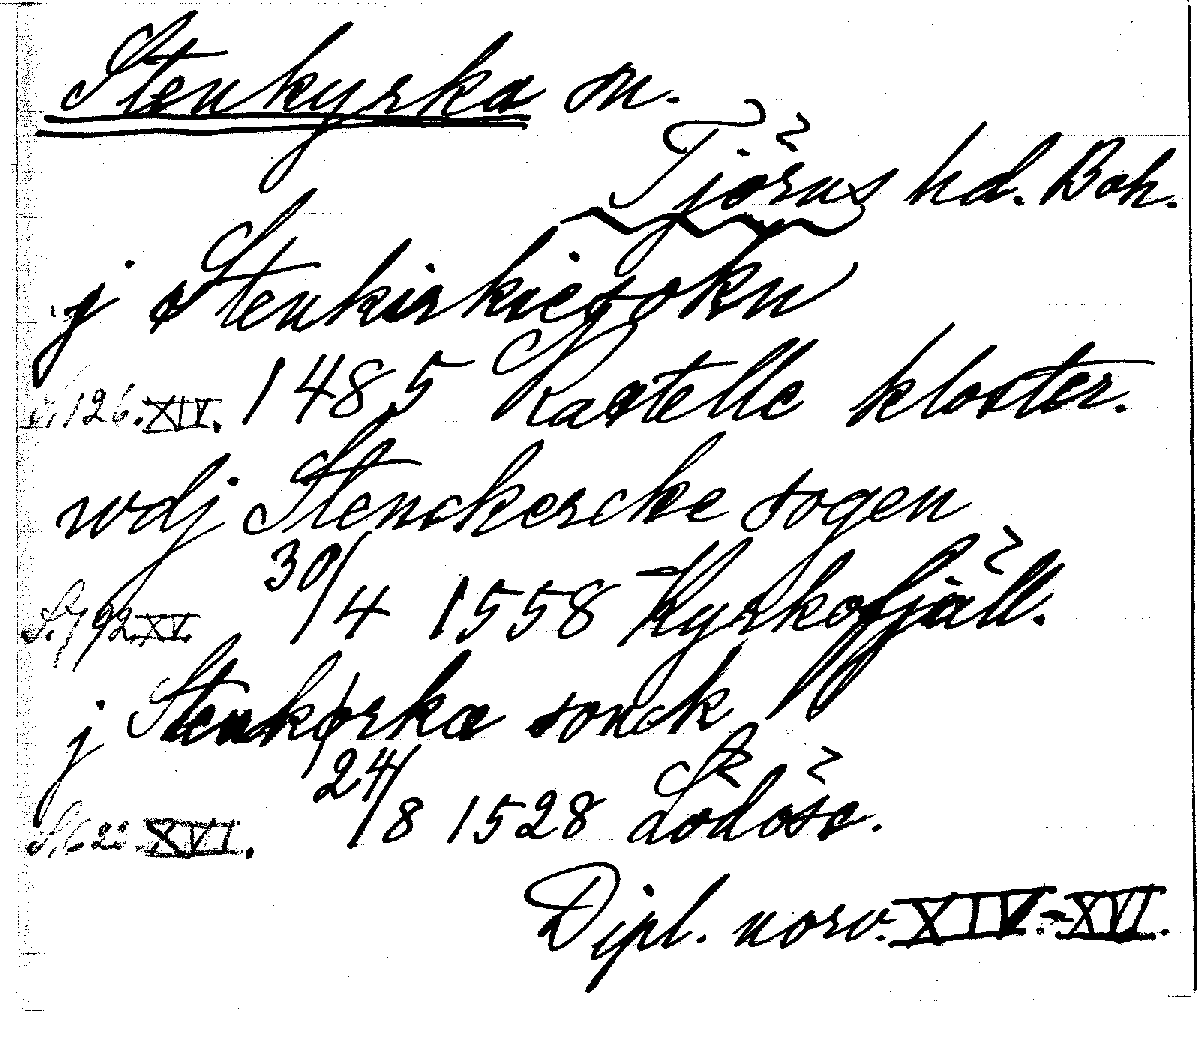 Stenkyrka sn.
Tjörns hd. Boh.
j Stenkirkiesokn
S. 126. XIV. 1485 Kastelle kloster.
wdj Stenckercke sogen
S. 792 XV. 30/4 1558 Kyrkofjäll.
j Stenkørka sonck
S. 622 XVI. 24/8 1528 Lödöse.
Dipl. norv. XIV.-XVI.